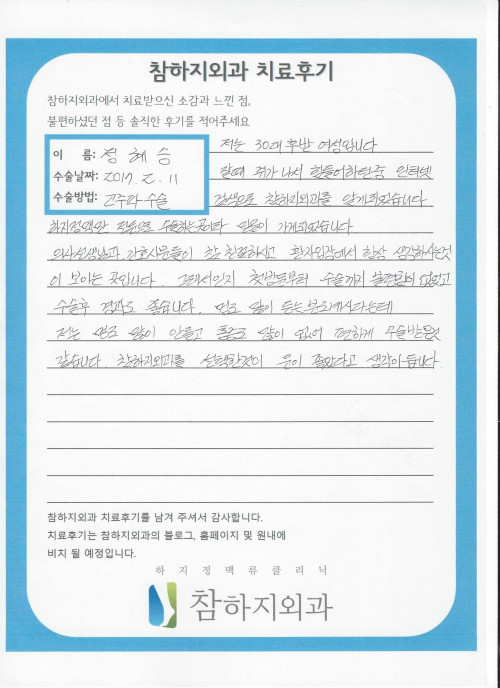 참하지외과 치료후기
참하지외과에서 치료받으신 소감과 느낀 점,
불편하셨던 점 등 솔직한 후기를 적어주세요
이 름: 정혜승
수술날짜: 2017. 2. 11
수술방법: 고주파 수술
저는 30대 후반 여성입니다
할때 쥐가 나서 힘들어하던중 인터넷
검색으로 참하지외과를 알게되었습니다.
하지정맥만 전문으로 수술하는곳이라 믿음이 가게되었습니다
의사선생님과, 간호사분들이 참 친절하시고 환자입장에서 항상 생각하시는것
이 보이는 곳입니다. 그래서인지 첫방문부터 수술까지 불편함이 없었고
수술후 경과도 좋습니다. 멍도 많이 드는 분도 계시다는데
저는 멍도 많이 안들고 통증도 많이 없어 편하게 수술받은것
같습니다. 참하지외과를 선택한것이 운이 좋았다고 생각이 듭니다.
참하지외과 치료후기를 남겨 주셔서 감사합니다.
치료후기는 참하지외과의 블로그, 홈페이지 및 원내에
비치 될 예정입니다.
하지정맥류클리닉
참하지외과